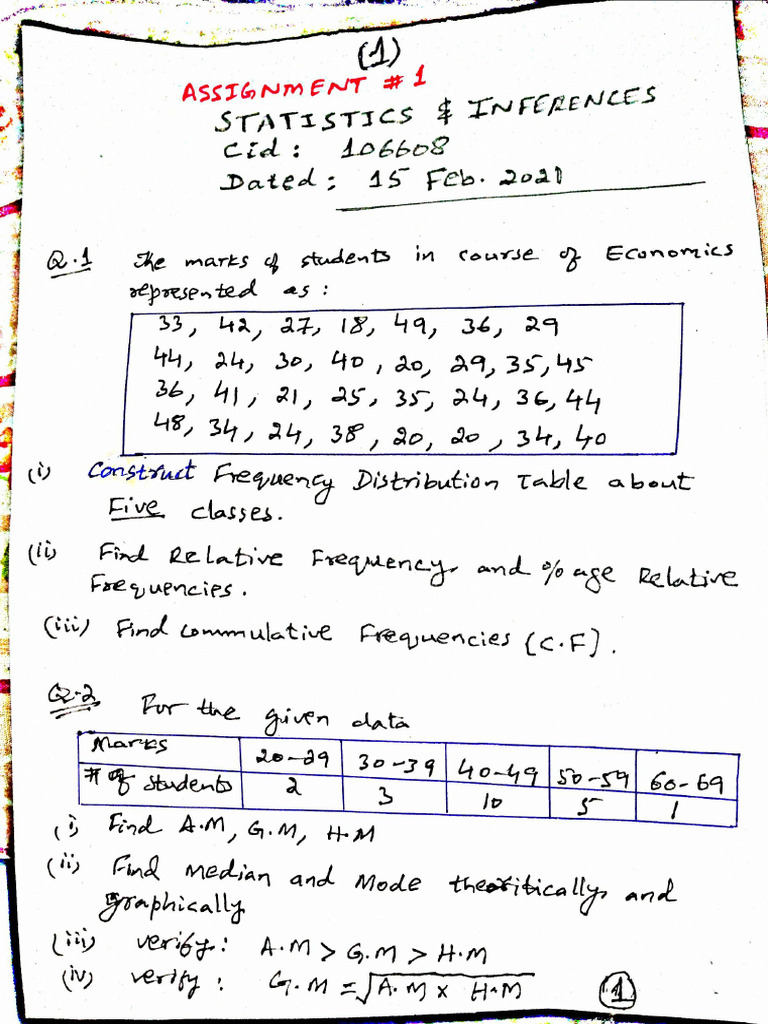 (1)
ASSIGNMENT # 1
STATISTICS & INFERENCES
Cid: 106608
Dated: 15 Feb. 2021
Q.1 The marks of students in course of Economics
represented as:
33, 42, 27, 18, 49, 36, 29
44, 24, 30, 40, 20, 29, 35, 45
36, 41, 21, 25, 35, 24, 36, 44
48, 34, 24, 38, 20, 20, 34, 40
(i) Construct Frequency Distribution Table about
Five classes.
(ii) Find Relative Frequency, and %age Relative
Frequencies.
(iii) Find Commulative Frequencies (C.F).
Q.2 For the given data
Marks 20-29 30-39 40-49 50-59 60-69
# of students 2 3 10 5 1
(i) Find A.M, G.M, H.M
(ii) Find Median and Mode theoritically and
graphically
(iii) verify: A.M > G.M > H.M
(iv) verify: G.M = √A.M x H.M
1